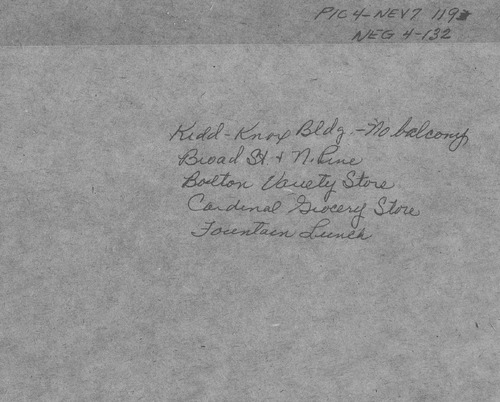 PIC 4-NEV7 119
NEG 4-132
Kidd-Knox Bldg. - No balcony
Broad St + N. Pine
Bolton Variety Store
Cardinal Grocery Store
Fountain Lunch